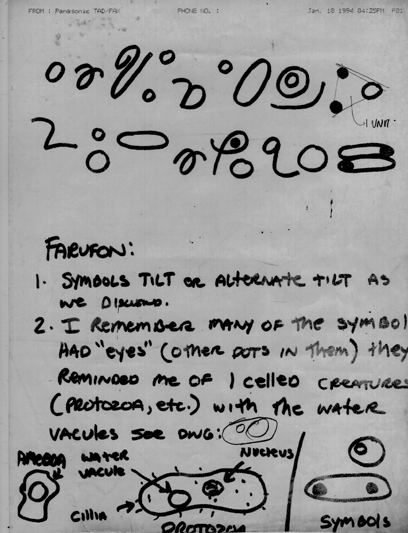 FROM : Panasonic TAD/FAX PHONE NO. : Jan. 10 1994 04:25PM P01
1 UNIT
FARUFON:
1. SYMBOLS TILT OR ALTERNATE TILT AS
WE
2. I REMEMBER MANY OF THE SYMBOL
HAD "EYES" (OTHER DOTS IN THEM) THEY
REMINDED ME OF 1 CELLED CREATURES
(PROTOZOA, ETC.) WITH THE WATER
VACULES SEE DWG:
AMEOBA WATER VACULE NUCLEUS
CILLIA PROTOZOA SYMBOLS